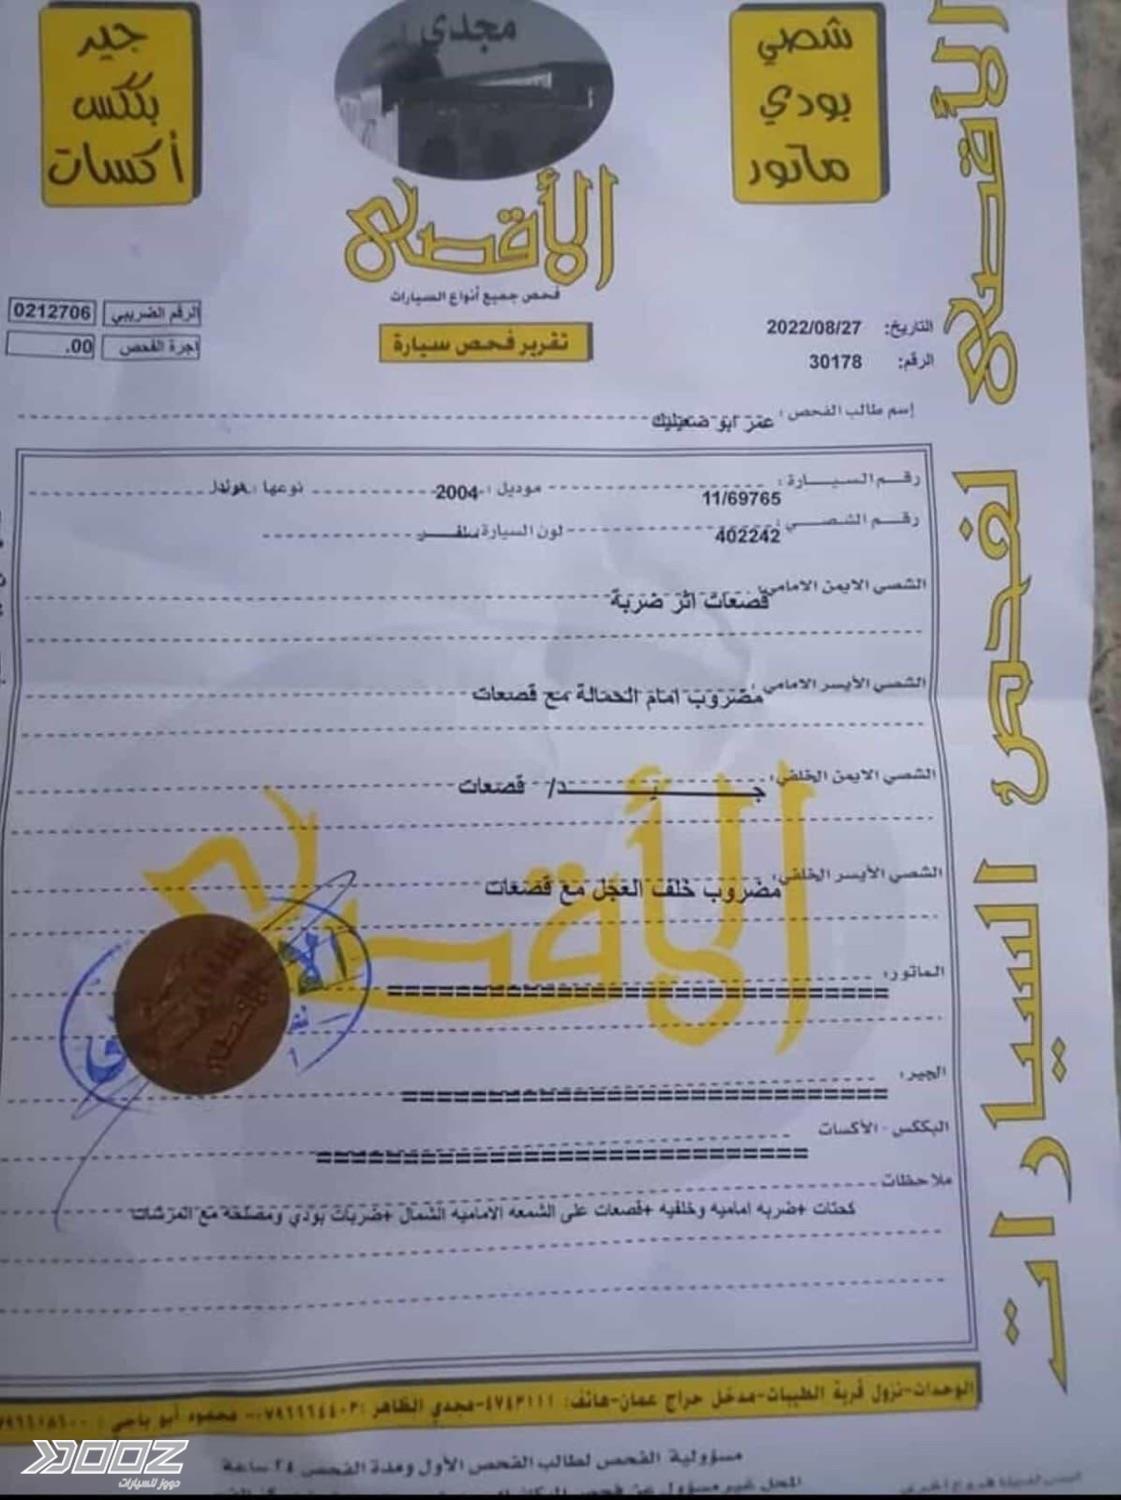 شصي
بودي
ماتور
مجدي
الأقصى
فحص جميع أنواع السيارات
تقرير فحص سيارة
جير
بككس
أكسات
الأقصى لفحص السيارات
التاريخ: 2022/08/27
الرقم: 30178
الرقم الضريبي 0212706
اجرة الفحص 00.
إسم طالب الفحص: عمر ابو ضعيليك
رقم السيارة: 11/69765 موديل: 2004 نوعها: هوندا
رقم الشصي: 402242 لون السيارة سلفر
الشصي الايمن الامامي: قصعات اثر ضربة
الشصي الأيسر الامامي: مضروب امام الحمالة مع قصعات
الشصي الايمن الخلفي: جيد/ قصعات
الشصي الأيسر الخلفي: مضروب خلف العجل مع قصعات
الماتور: ==============================
الجير: ==============================
البككس - الأكسات ==============================
ملاحظات
كحتات +ضربه اماميه وخلفيه +قصعات على الشمعه الاماميه الشمال +ضربات بودي ومصلحه مع المرشات
الوحدات-نزول قرية الطيبات-مدخل حراج عمان-هاتف: ٤٧٤٣١١١-مجدي الظاهر: ٠٧٩٦٦٦٤٤٠٣- محمود أبو ياجي:
مسؤولية الفحص لطالب الفحص الأول ومدة الفحص ٢٤ ساعة
المحل غير مسؤول عن فحص
ليس لدينا فروع أخرى
DOOZ
دووز للسيارات